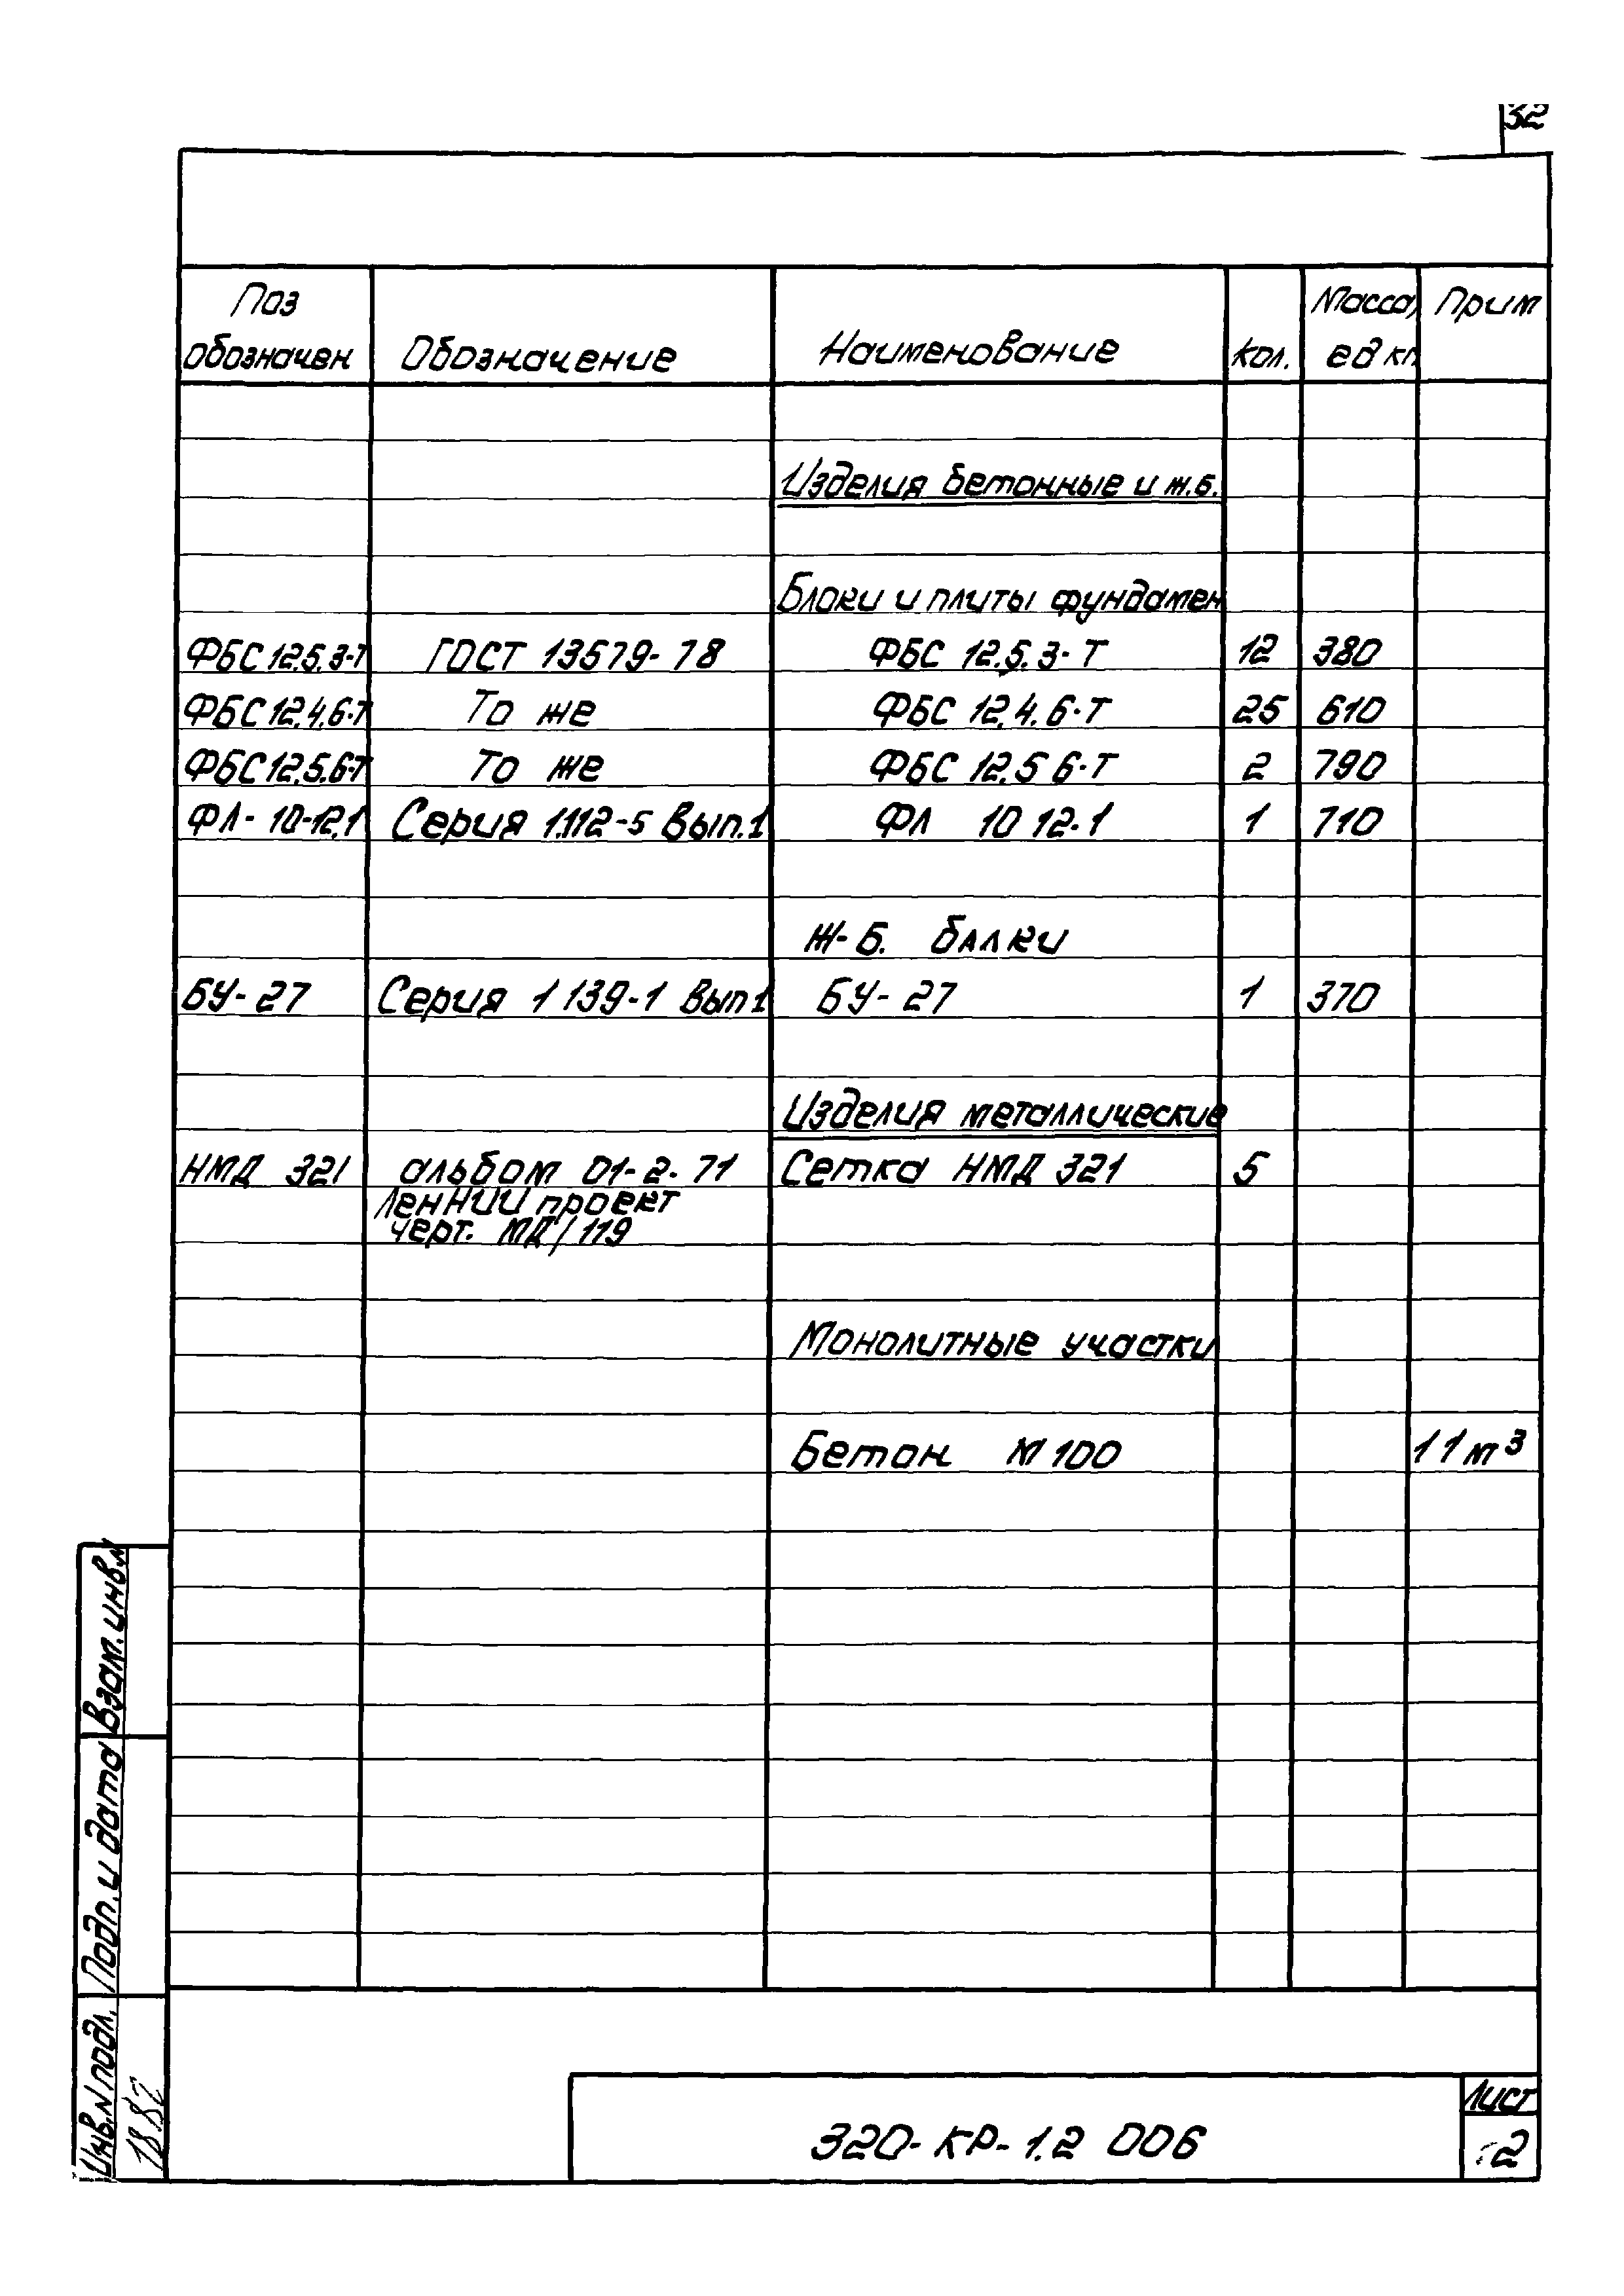 32
Поз обозначен Обозначение Наименование кол. Масса, ед кг Прим
Изделия бетонные и ж.б.
Блоки и плиты фундамен
ФБС 12.5.3-Т ГОСТ 13579-78 ФБС 12.5.3-Т 12 380
ФБС 12.4.6-Т То же ФБС 12.4.6-Т 25 610
ФБС 12.5.6-Т То же ФБС 12.5 6-Т 2 790
ФЛ-10-12.1 Серия 1.112-5 Вып.1 ФЛ 10 12-1 1 710
Ж-Б. балки
БУ-27 Серия 1 139-1 Вып 1 БУ-27 1 370
Изделия металлические
НМД 321 альбом 01-2-71 Сетка НМД 321 5
ЛенНИИпроект
черт. МД/119
Монолитные участки
Бетон М 100 1 1 м³
Взам. инв. N
Подп. и дата
Инв. N подл.
1882
320-КР-1.2 006
Лист
2